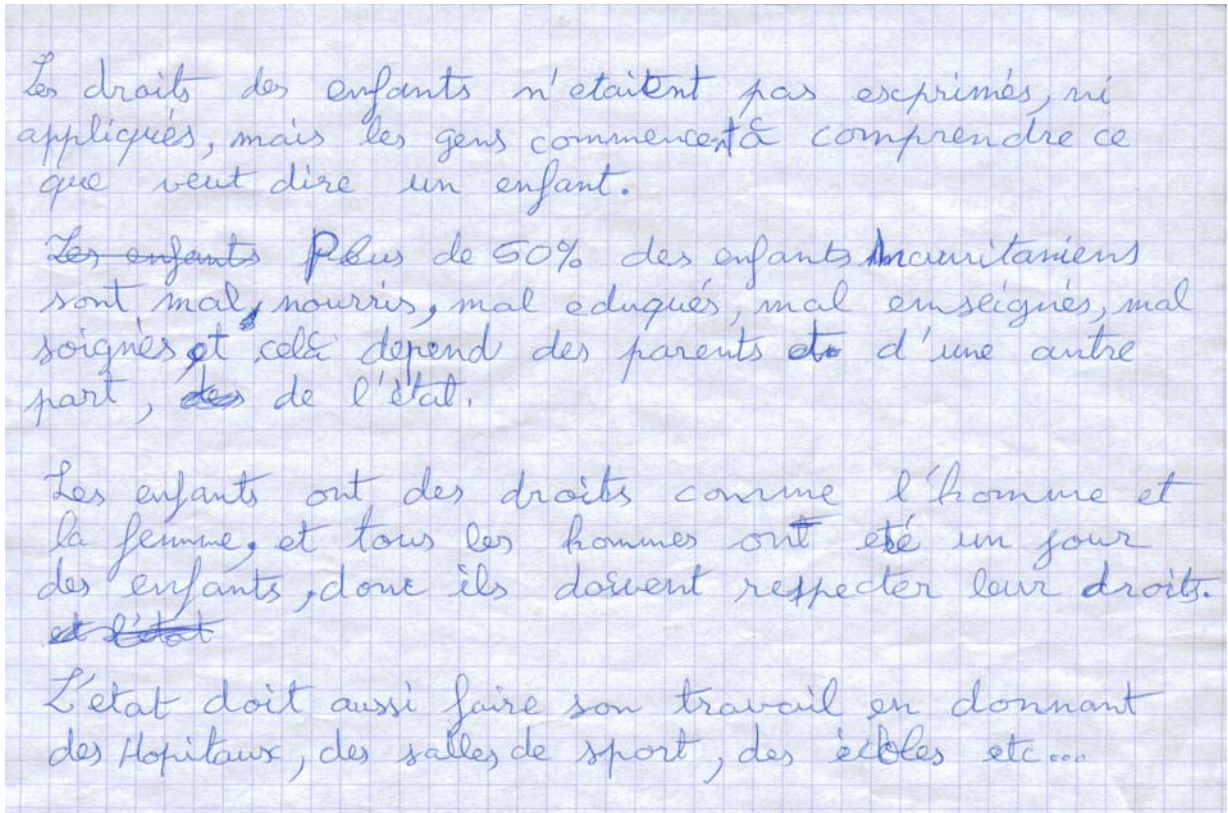 Les droits des enfants n'etaitent pas exprimés, ni
appliqués, mais les gens commencent à comprendre ce
que veut dire un enfant.
Les enfants Plus de 50% des enfants mauritaniens
sont mal, nourris, mal eduqués, mal enseignés, mal
soignés et celà depend des parents et d'une autre
part, des de l'état.
Les enfants ont des droits comme l'homme et
la femme, et tous les hommes ont eté un jour
des enfants, donc ils doivent respecter leur droits.
et l'état
L'etat doit aussi faire son travail en donnant
des Hopitaux, des salles de sport, des ècoles etc...